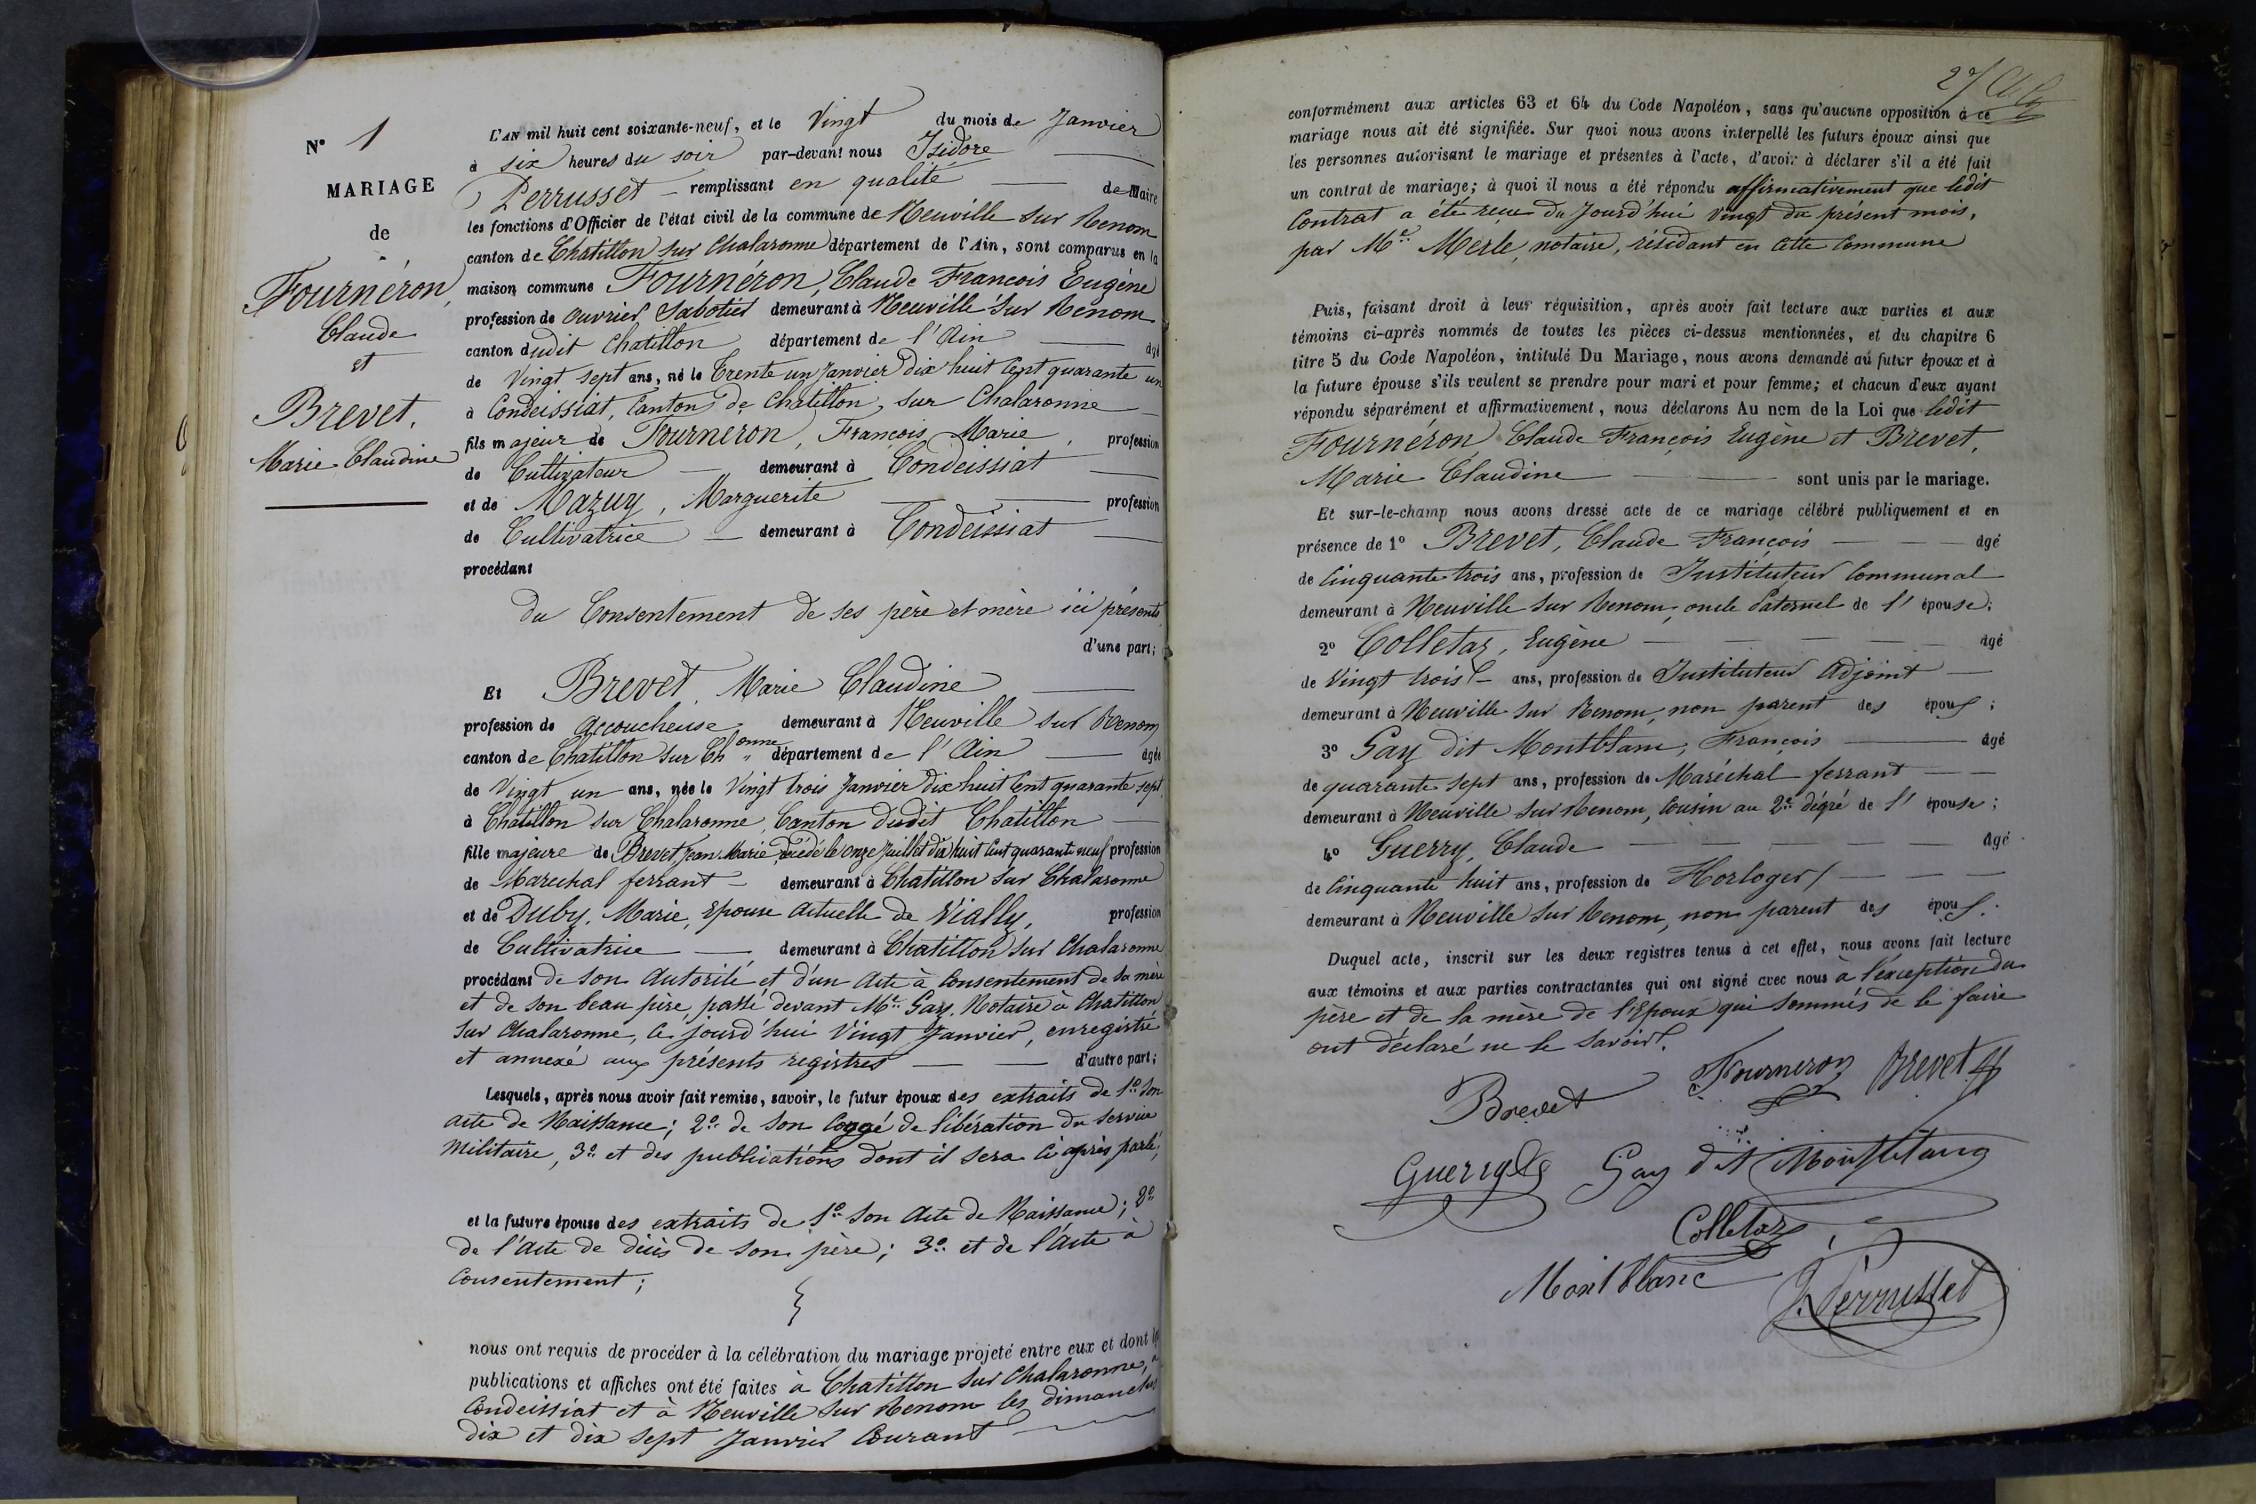 N° 1
MARIAGE
de
Fournéron,
Claude
et
Brevet,
Marie Claudine
L'AN mil huit cent soixante-neuf, et le Vingt du mois de Janvier
à six heures du soir par-devant nous Isidore
Perrusset remplissant en qualité de Maire
les fonctions d'Officier de l'état civil de la commune de Neuville sur Renom
canton de Chatillon sur Chalaronne département de l'Ain, sont comparus en la
maison commune Fournéron, Claude François Eugène
profession de ouvrier Sabotier demeurant à Neuville sur Renom
canton dudit Chatillon département de l'Ain âgé
de Vingt sept ans, né le Trente un Janvier dix huit cent quarante un
à Condeissiat, Canton de Chatillon sur Chalaronne
fils majeur de Fourneron, François Marie, profession
de Cultivateur demeurant à Condeissiat
et de Mazuy, Marguerite profession
de Cultivatrice demeurant à Condeissiat
procédant
du Consentement de ses père et mère ici présents
d'une part;
Et Brevet Marie Claudine
profession de accoucheuse demeurant à Neuville sur Renom
canton de Chatillon sur Chonne département de l'Ain âgée
de Vingt un ans, née le Vingt trois Janvier dix huit cent quarante sept
à Chatillon sur Chalaronne, Canton dudit Chatillon
fille majeure de Brevet Jean Marie décédé le onze Juillet dix huit cent quarante neuf profession
de Marechal ferrant demeurant à Chatillon sur Chalaronne
et de Duby, Marie, Epouse actuelle de Vially, profession
de Cultivatrice demeurant à Chatillon sur Chalaronne
procédant de son autorité et d'un acte à consentement de sa mère
et de son beau père, passé devant Me Gay, Notaire à Chatillon
sur Chalaronne, ce jourd'hui Vingt Janvier, enregistré
et annexé aux présents registres d'autre part;
Lesquels, après nous avoir fait remise, savoir, le futur époux des extraits de 1o son
acte de Naissance; 2o de son Congé de libération du service
Militaire, 3o et des publications dont il sera ci après parlé;
et la future épouse des extraits de 1o son Acte de Naissance; 2o
de l'Acte de décès de son père; 3o et de l'Acte à
Consentement;
nous ont requis de procéder à la célébration du mariage projeté entre eux et dont les
publications et affiches ont été faites à Chatillon sur Chalaronne, à
Condeissiat et à Neuville sur Renom les dimanches
dix et dix sept Janvier Courant
27
conformément aux articles 63 et 64 du Code Napoléon, sans qu'aucune opposition à ce
mariage nous ait été signifiée. Sur quoi nous avons interpellé les futurs époux ainsi que
les personnes autorisant le mariage et présentes à l'acte, d'avoir à déclarer s'il a été fait
un contrat de mariage; à quoi il nous a été répondu affirmativement que ledit
Contrat a été reçu du Jourd'hui vingt du présent mois,
par Me Merle, notaire, résidant en cette Commune
Puis, faisant droit à leur réquisition, après avoir fait lecture aux parties et aux
témoins ci-après nommés de toutes les pièces ci-dessus mentionnées, et du chapitre 6
titre 5 du Code Napoléon, intitulé Du Mariage, nous avons demandé au futur époux et à
la future épouse s'ils veulent se prendre pour mari et pour femme; et chacun d'eux ayant
répondu séparément et affirmativement, nous déclarons Au nom de la Loi que ledit
Fournéron Claude François Eugène et Brevet,
Marie Claudine sont unis par le mariage.
Et sur-le-champ nous avons dressé acte de ce mariage célébré publiquement et en
présence de 1° Brevet, Claude François âgé
de Cinquante trois ans, profession de Instituteur Communal
demeurant à Neuville sur Renom, oncle Paternel de l'épouse;
2° Colletaz, Eugène âgé
de Vingt trois ans, profession de Instituteur Adjoint
demeurant à Neuville sur Renom, non parent des époux;
3° Gay dit Montblanc, François âgé
de quarante sept ans, profession de Maréchal ferrant
demeurant à Neuville sur Renom, Cousin au 2e dégré de l'épouse;
4° Guerry, Claude âgé
de Cinquante huit ans, profession de Horloger
demeurant à Neuville sur Renom, non parent des époux.
Duquel acte, inscrit sur les deux registres tenus à cet effet, nous avons fait lecture
aux témoins et aux parties contractantes qui ont signé avec nous à l'exception du
père et de la mère de l'Epoux qui sommés de le faire
ont déclaré ne le savoir.
Brevet Fourneron Brevet
Guerry Gay dit Montblanc
Colletaz
Montblanc J. Perrusset